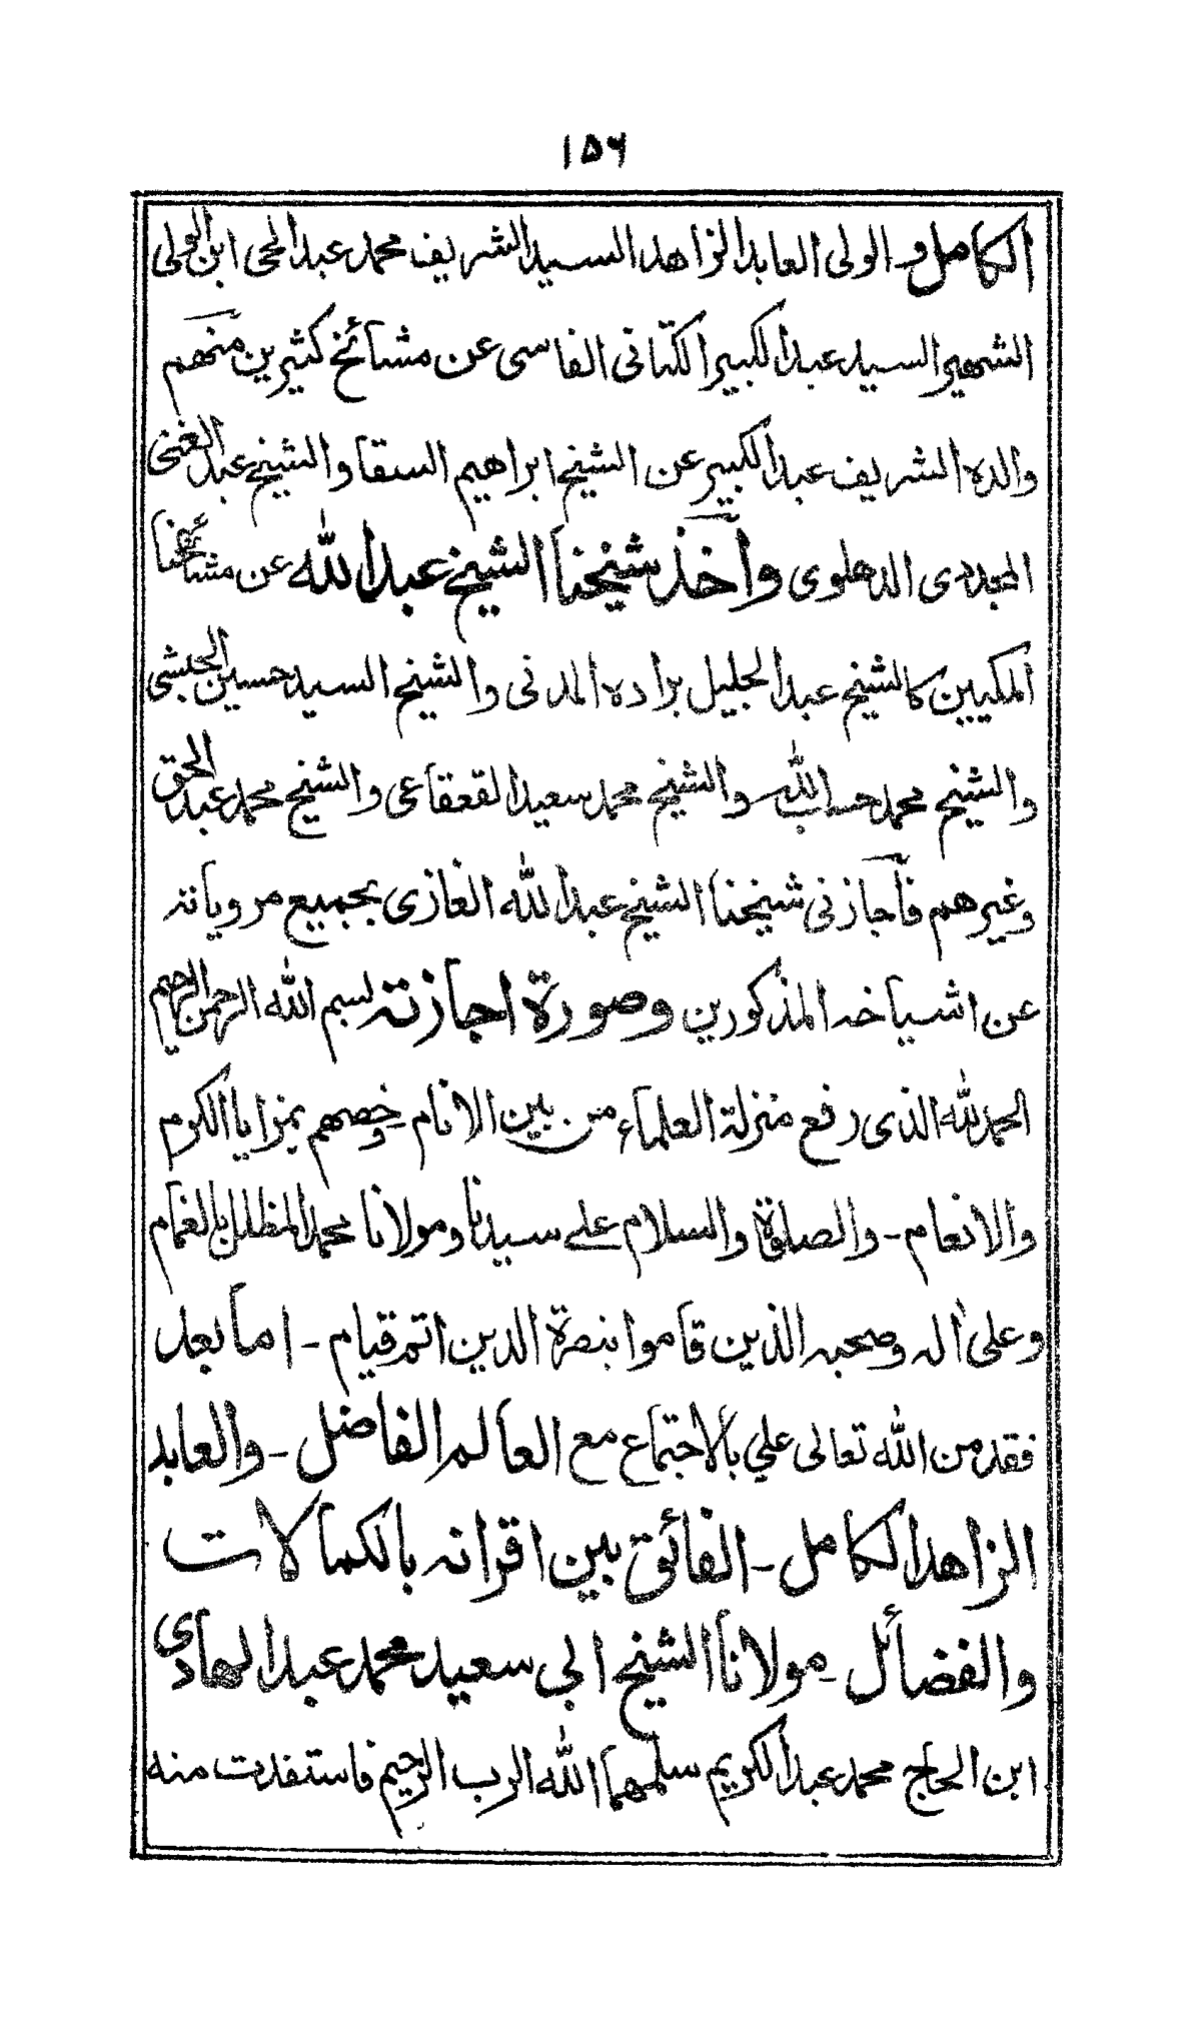 ١٥٦
الكامل و الولى العابد الزاهد السيد الشريف محمد عبد الحى ابن المولى
الشهير السيد عبد الكبير الكتانى الفاسى عن مشائخ كثيرين منهم
والده الشريف عبد الكبير عن الشيخ ابراهيم السقا والشيخ عبد الغنى
المجددى الدهلوى وأخذ شيخنا الشيخ عبد الله عن مشائخنا
المكيين كالشيخ عبد الجليل براده المدنى والشيخ السيد حسين الحبشى
والشيخ محمد حسب الله والشيخ محمد سعيد القعقاعى والشيخ محمد عبد الحق
وغيرهم فأجازنى شيخنا الشيخ عبد الله الغازى بجميع مروياته
عن اشياخه المذكورين وصورة اجازته بسم الله الرحمن الرحيم
الحمد لله الذى رفع منزلة العلماء من بين الانام وخصهم بمزايا الكرم
والانعام - والصلوة والسلام على سيدنا ومولانا محمد المظلل بالغمام
وعلى اله وصحبه الذين قاموا بنصرة الدين اتم قيام - اما بعد
فقد من الله تعالى علي بالاجتماع مع العالم الفاضل - والعابد
الزاهد الكامل - الفائق بين اقرانه بالكمالات
والفضائل - مولانا الشيخ ابى سعيد محمد عبد الهادى
ابن الحاج محمد عبد الكريم سلمهما الله الرب الرحيم فاستفدت منه